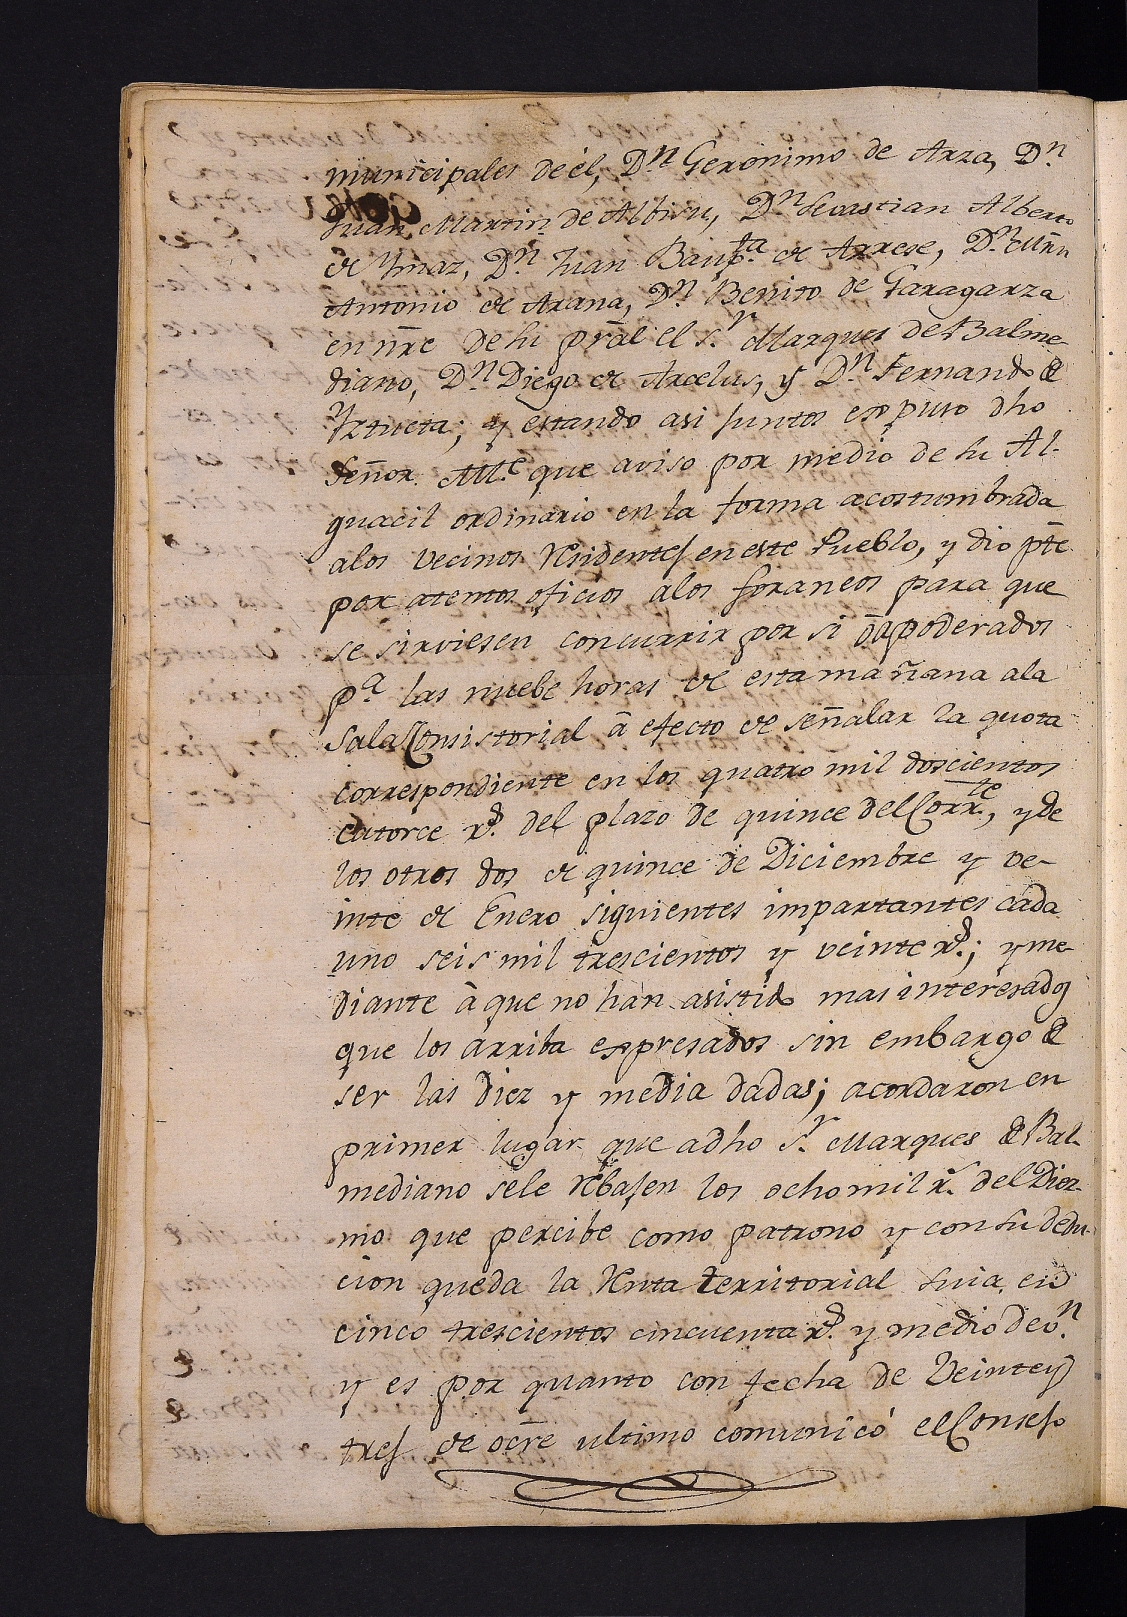 municipales de èl, D.n Geronimo de Arza, D.n
Juan Martin de Albisu, D.n Sevastian Alberto
de Ymaz, D.n Juan Baup.ta de Arrese, D.n
Antonio de Arana, D.n Benito de Garagarza
en nr̃e de su prãl el s.r Marques de Balme-
diano, D.n Diego de Arcelus, y D.n Fernando de
Yztueta; y estando asi juntos expuso dho
Señor Alc.e que aviso por medio de su Al-
guacil ordinario en la forma acostumbrada
alos vecinos Residentes en este Pueblo, y dio pt̃e
por atentos oficios alos foraneos para que
se sirviesen concurrir por si ò apoderados
p.a las nuebe horas de esta mañana ala
Sala Consistorial â efecto de señalar la quota
correspondiente en los quatro mil doscientos
catorce r.s del plazo de quince del Corr.te, y de
los otros dos de quince de Diciembre y ve-
inte de Enero siguientes impartantes cada
uno seis mil trescientos y veinte r.s; y me-
diante à que no han asistido mas interesados
que los arriba expresados sin embargo de
ser las diez y media dadas; acordaron en
primer lugar que adho S.r Marques de Bal-
mediano sele Rebasen los ocho mil r.s del Diez-
mo que percibe como patrono y con su dedu-
cion queda la Renta territorial suia, en
cinco trescientos cincuenta r.s y medio de v.n
y es por quanto con fecha de Veinte y
tres de oc̃re ultimo comunicó el Consejo